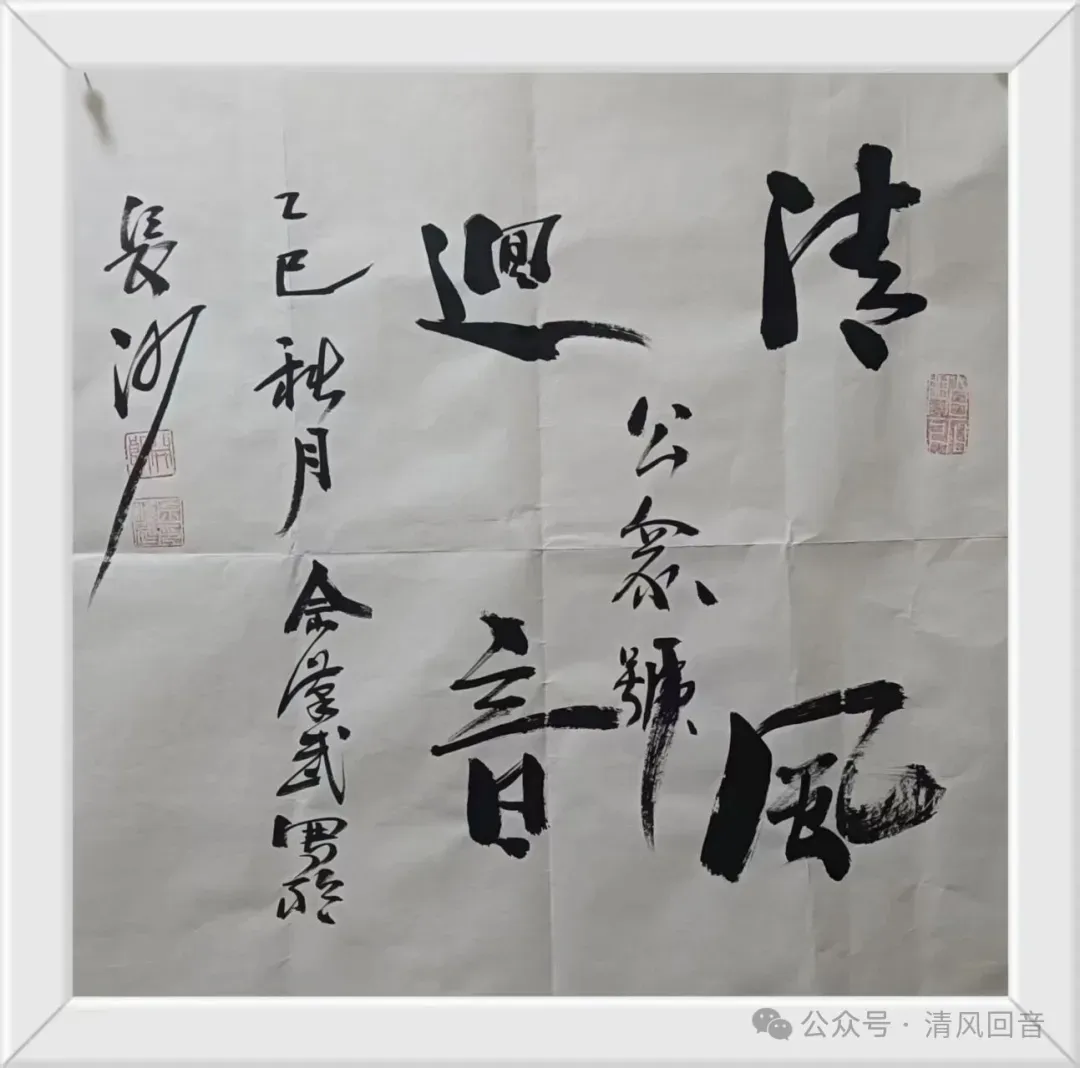 清風
公眾號
迴音
乙巳秋月余漢武寫於
長沙
公众号 · 清风回音